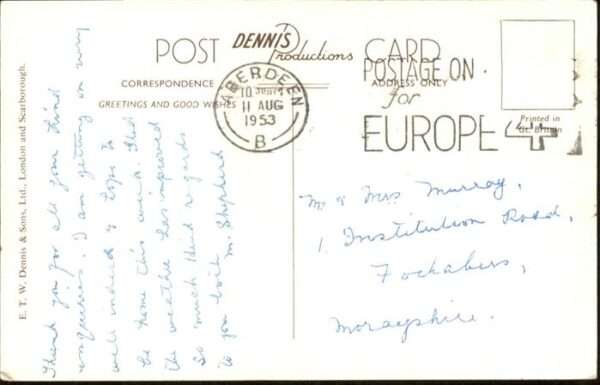 POST DENNIS Productions CARD
CORRESPONDENCE
ADDRESS ONLY
GREETINGS AND GOOD WISHES
ABERDEEN
11 AUG
1953
B
POSTAGE ON
for
EUROPE 4
Printed in
Gt. Britain
E. T. W. Dennis & Sons, Ltd., London and Scarborough.
Thank you for all your kind
enquiries. I am getting on very
well indeed & hope to
be home this week. Glad
the weather has improved
So much kind regards
to you both M. Shepherd
Mr & Mrs Murray,
1 Institution Road,
Fochabers,
Morayshire.